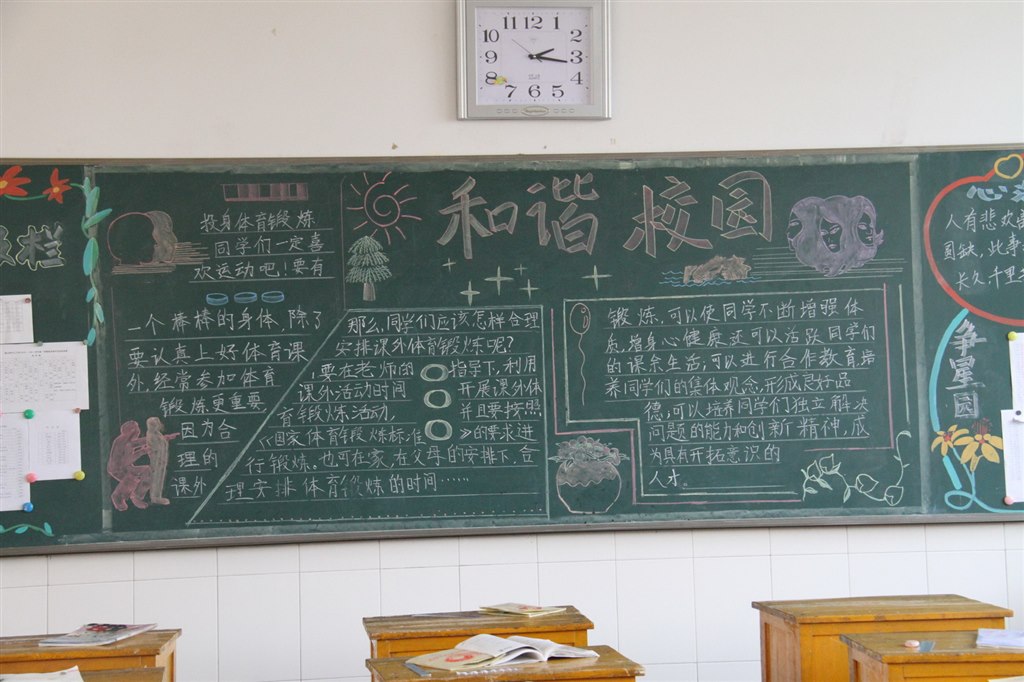 11 12 1
10 2
9 3
8 4
7 6 5
和谐校园
投身体育锻炼
同学们一定喜
欢运动吧！要有
一个棒棒的身体，除了
要认真上好体育课
外，经常参加体育
锻炼更重要
因为合
理的
课外
那么，同学们应该怎样合理
安排课外体育锻炼呢？
要在老师的指导下，利用
课外活动时间开展课外体
育锻炼活动，并且要按照
《国家体育锻炼标准》的要求进
行锻炼。也可在家，在父母的安排下，合
理安排体育锻炼的时间……
锻炼，可以使同学不断增强体
质，增身心健康还可以活跃同学们
的课余生活；可以进行合作教育培
养同学们的集体观念，形成良好品
德；可以培养同学们独立解决
问题的能力和创新精神，成
为具有开拓意识的
人才。
栏
心
人有悲欢
圆缺，此事
长久，千里
争星园